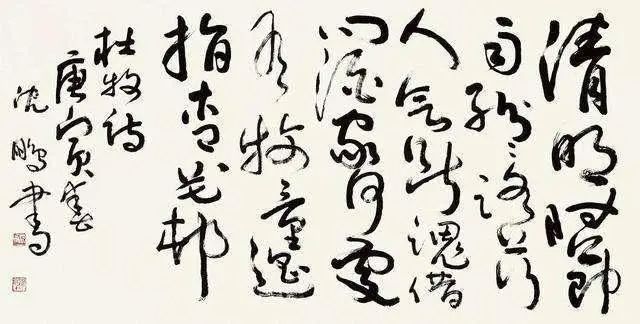 清明時節
雨紛々路上行
人欲斷魂借
問酒家何處
有牧童遥
指杏花邨
杜牧詩
庚寅春
沈鵬書